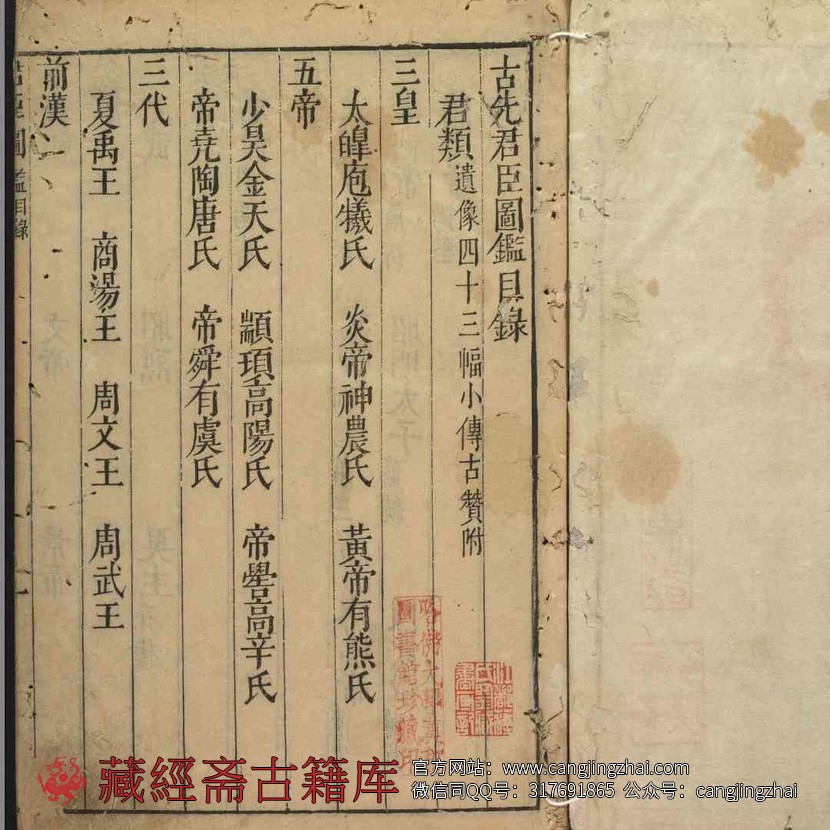 古先君臣圖鑑目錄
君類遺像四十三幅小傳古贊附
三皇
太皥庖犧氏 炎帝神農氏 黃帝有熊氏
五帝
少昊金天氏 顓頊高陽氏 帝嚳高辛氏
帝堯陶唐氏 帝舜有虞氏
三代
夏禹王 商湯王 周文王 周武王
前漢
君臣圖鑑目錄
哈佛大學漢和
圖書館珍藏印
藏經斋古籍库
官方网站：www.cangjingzhai.com
微信同QQ号：317691865 公众号：cangjingzhai